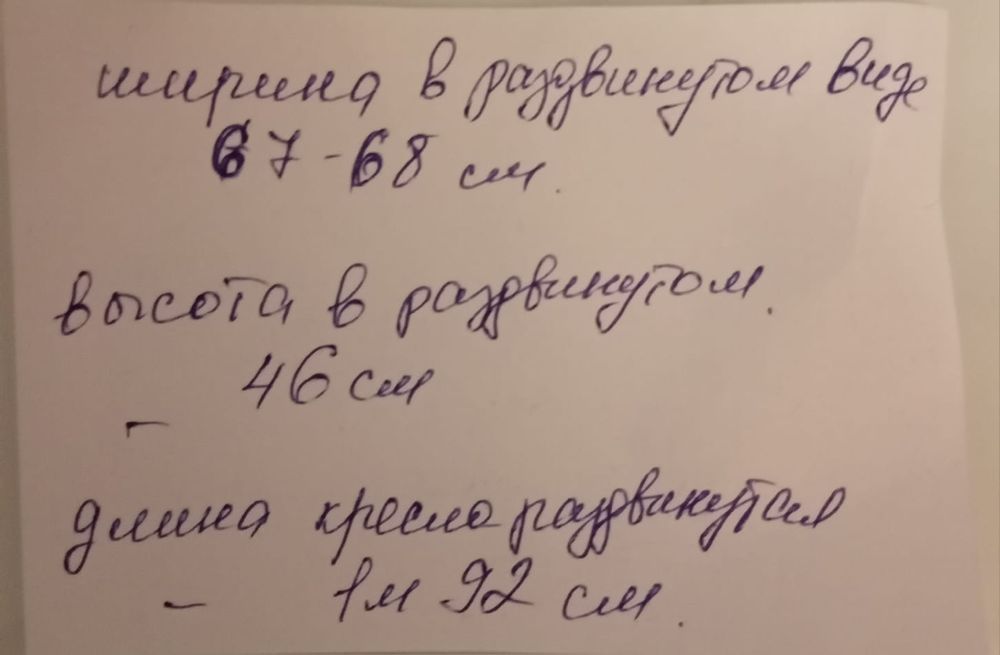 ширина в раздвинутом виде
67-68 см.
высота в раздвинутом.
46 см
–
длина кресло раздвинутая
– 1м 92 см.